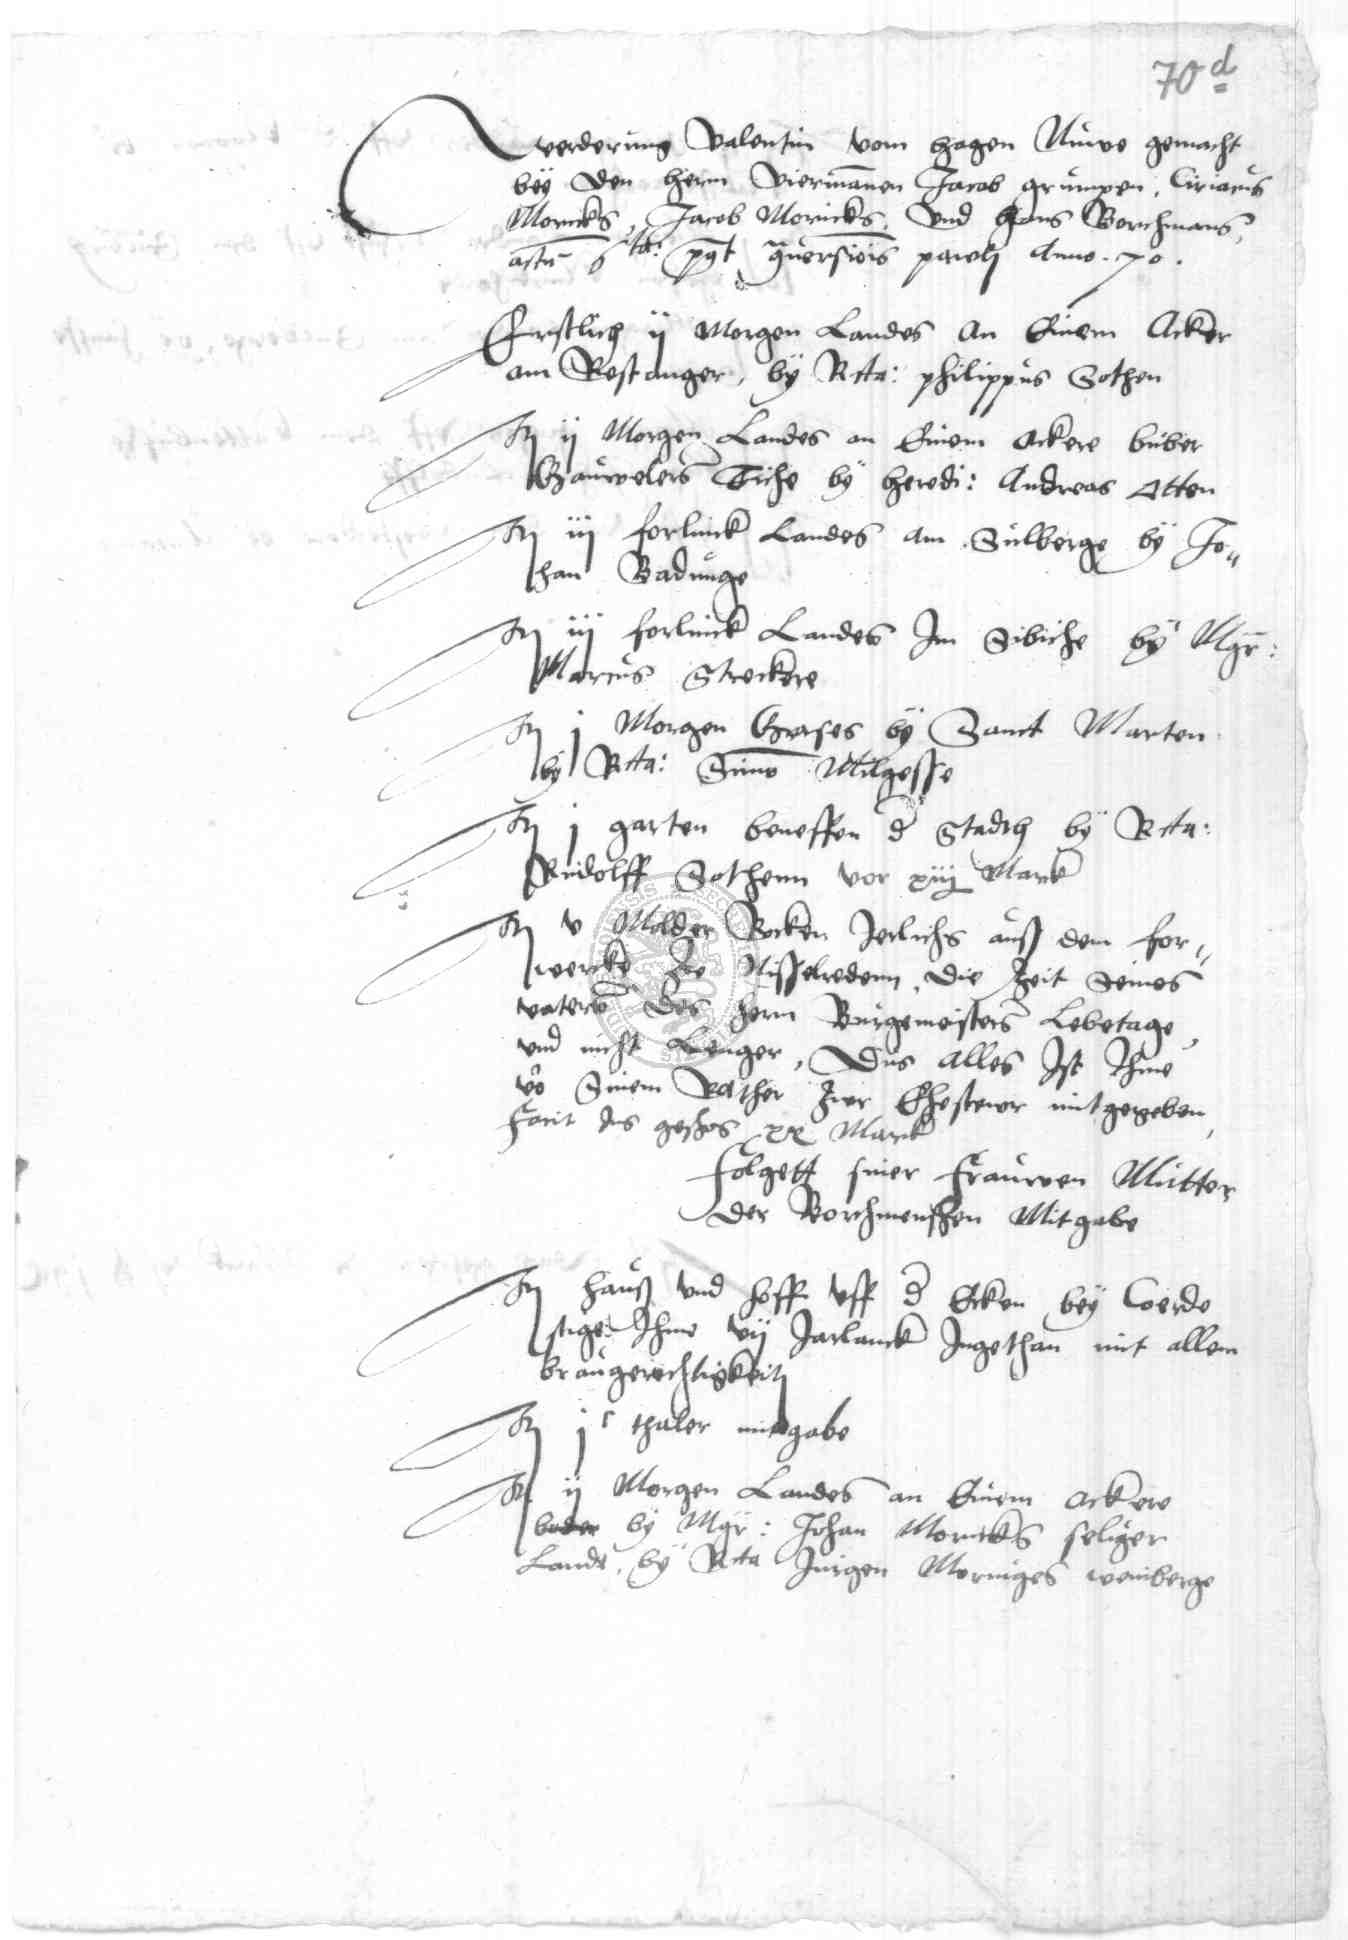 70 d
werderung Valentin vom Hagen Nuwe gemacht
bey den hern Viermannen Jacob grumpen, Ciriacus
Mornicks, Jacob Mornicks, und Hans Borchmans,
actū 6ta: pᵒt Conversiois pauli Anno . 70 .
Erstlich ij Morgen Landes an Einem Acker
am Rostanger, by Rela: philippus Sothen
It ij Morgen Landes an Einem Ackere buber
Gauwelers Tiche by heredi: Andreas Otten
It iij forlinck Landes am Sulberge by Jo„
han Badunge
It iij forlinck Landes Im Sibiche by Mgr:
Marcus Streckere
It j Morgen Grases by Sanct Marten
by Rcta: Simō Milgesse
It j garten beneffen d Stadth by Rcta:
Rudolff Sothenn vor xiij Marck
It v Molder Rocken Jerlichs auß dem for„
wercke zu Nisselredenn, die Zeit Seines
vaters des hern Burgemeisters Lebetage,
und nicht Lenger, Dus alles Ist Ihme
vō Sinem Vather Zur Ehesteur mitgegeben,
facit dus geschos xx Marck
Folgett siner Frauwen Mutter
der Borchmenschen Mitgabe
It Hauß und hoff uff d Ecken bey
stige: Ihme vij Jarlanck Ingethan mit allem
braugerechtigkeit
It jc thaler mitgabe
It ij Morgen Landes an Einem Ackere
by Mgr: Johan Mornicks seliger
Lande, by Rcta Jurgen Morniges weinberge